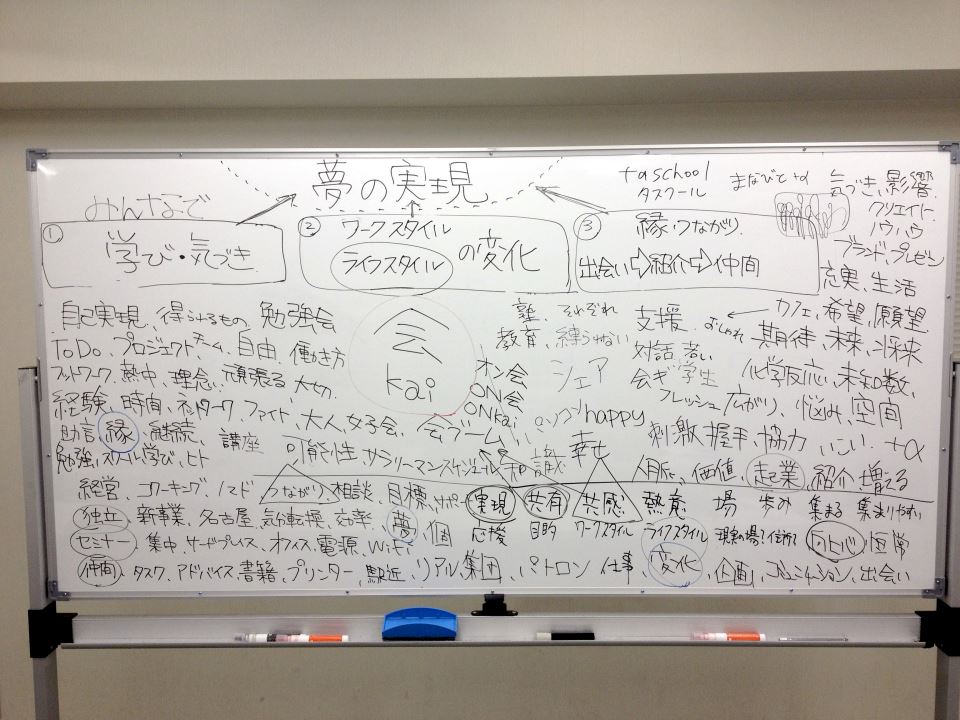 夢の実現
taschool
タスクール
まなびと+α
気づき、影響
クリエイト
ノウハウ
ブランド、プレゼン
充実、生活
みんなで
① 学び・気づき
② ワークスタイル
ライフスタイル の変化
③ 縁・つながり
出会い⇨紹介⇨仲間
自己実現、得られるもの 勉強会
ToDo、プロジェクトチーム、自由、働き方
フットワーク、熱中、理念、頑張る 大切
経験、時間、ネットワーク ファイト、大人、女子会、会ブーム
助言、縁、継続、講座
勉強、スクール、学び、ヒト
可能性、サラリーマン、スケジュール、知識
会
kai
オン会
ON会
ONkai
塾、それぞれ
教育、縛られない
シェア
happy
幸せ
支援
おしゃれ
対話、若い
会ギ 学生
フレッシュ 広がり、悩み、空間
刺激、握手、協力 +α
人脈、価値、起業、紹介、増える
カフェ、希望、願望
期待、未来、将来
化学反応、未知数
経営、コワーキング、ノマド つながり、相談、目標、サポート 実現 共有 共感 熱意 場 歩み 集まる 集まりやすい
独立、新事業、名古屋、気分転換、効率、夢、個 応援 目的 ワークスタイル ライフスタイル
セミナー、集中、サードプレイス、オフィス、電源、WiFi
仲間、タスク、アドバイス、書籍、プリンター、駅近、リアル、集団、パトロン 仕事、変化、企画、コミュニケーション、出会い